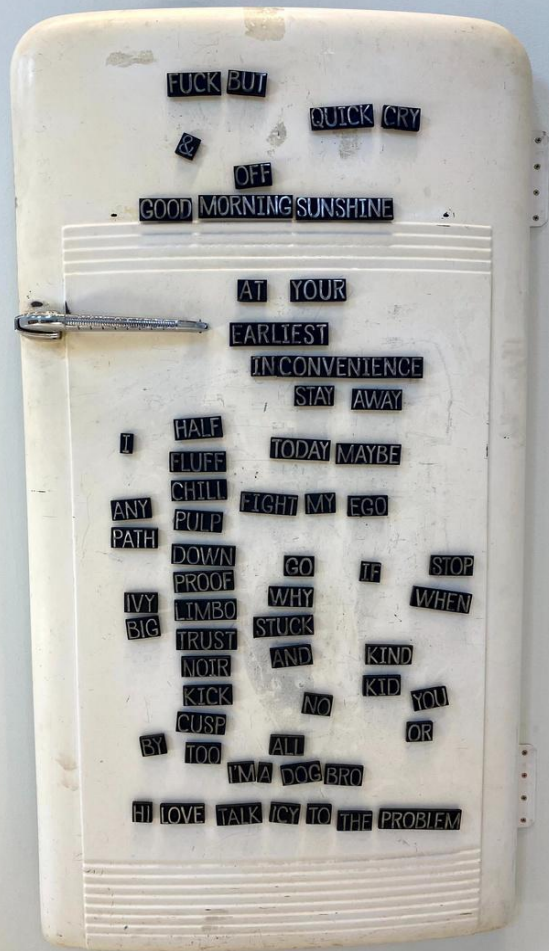 FUCK BUT
QUICK CRY
&
OFF
GOOD MORNING SUNSHINE
AT YOUR
EARLIEST
INCONVENIENCE
STAY AWAY
I HALF
TODAY MAYBE
FLUFF
CHILL
ANY FIGHT MY EGO
PULP
PATH
DOWN GO IF STOP
PROOF
IVY LIMBO WHY WHEN
BIG TRUST STUCK
NOIR AND KIND
KICK NO KID YOU
CUSP OR
BY TOO ALL
I'M A DOG BRO
HI LOVE TALK ICY TO THE PROBLEM